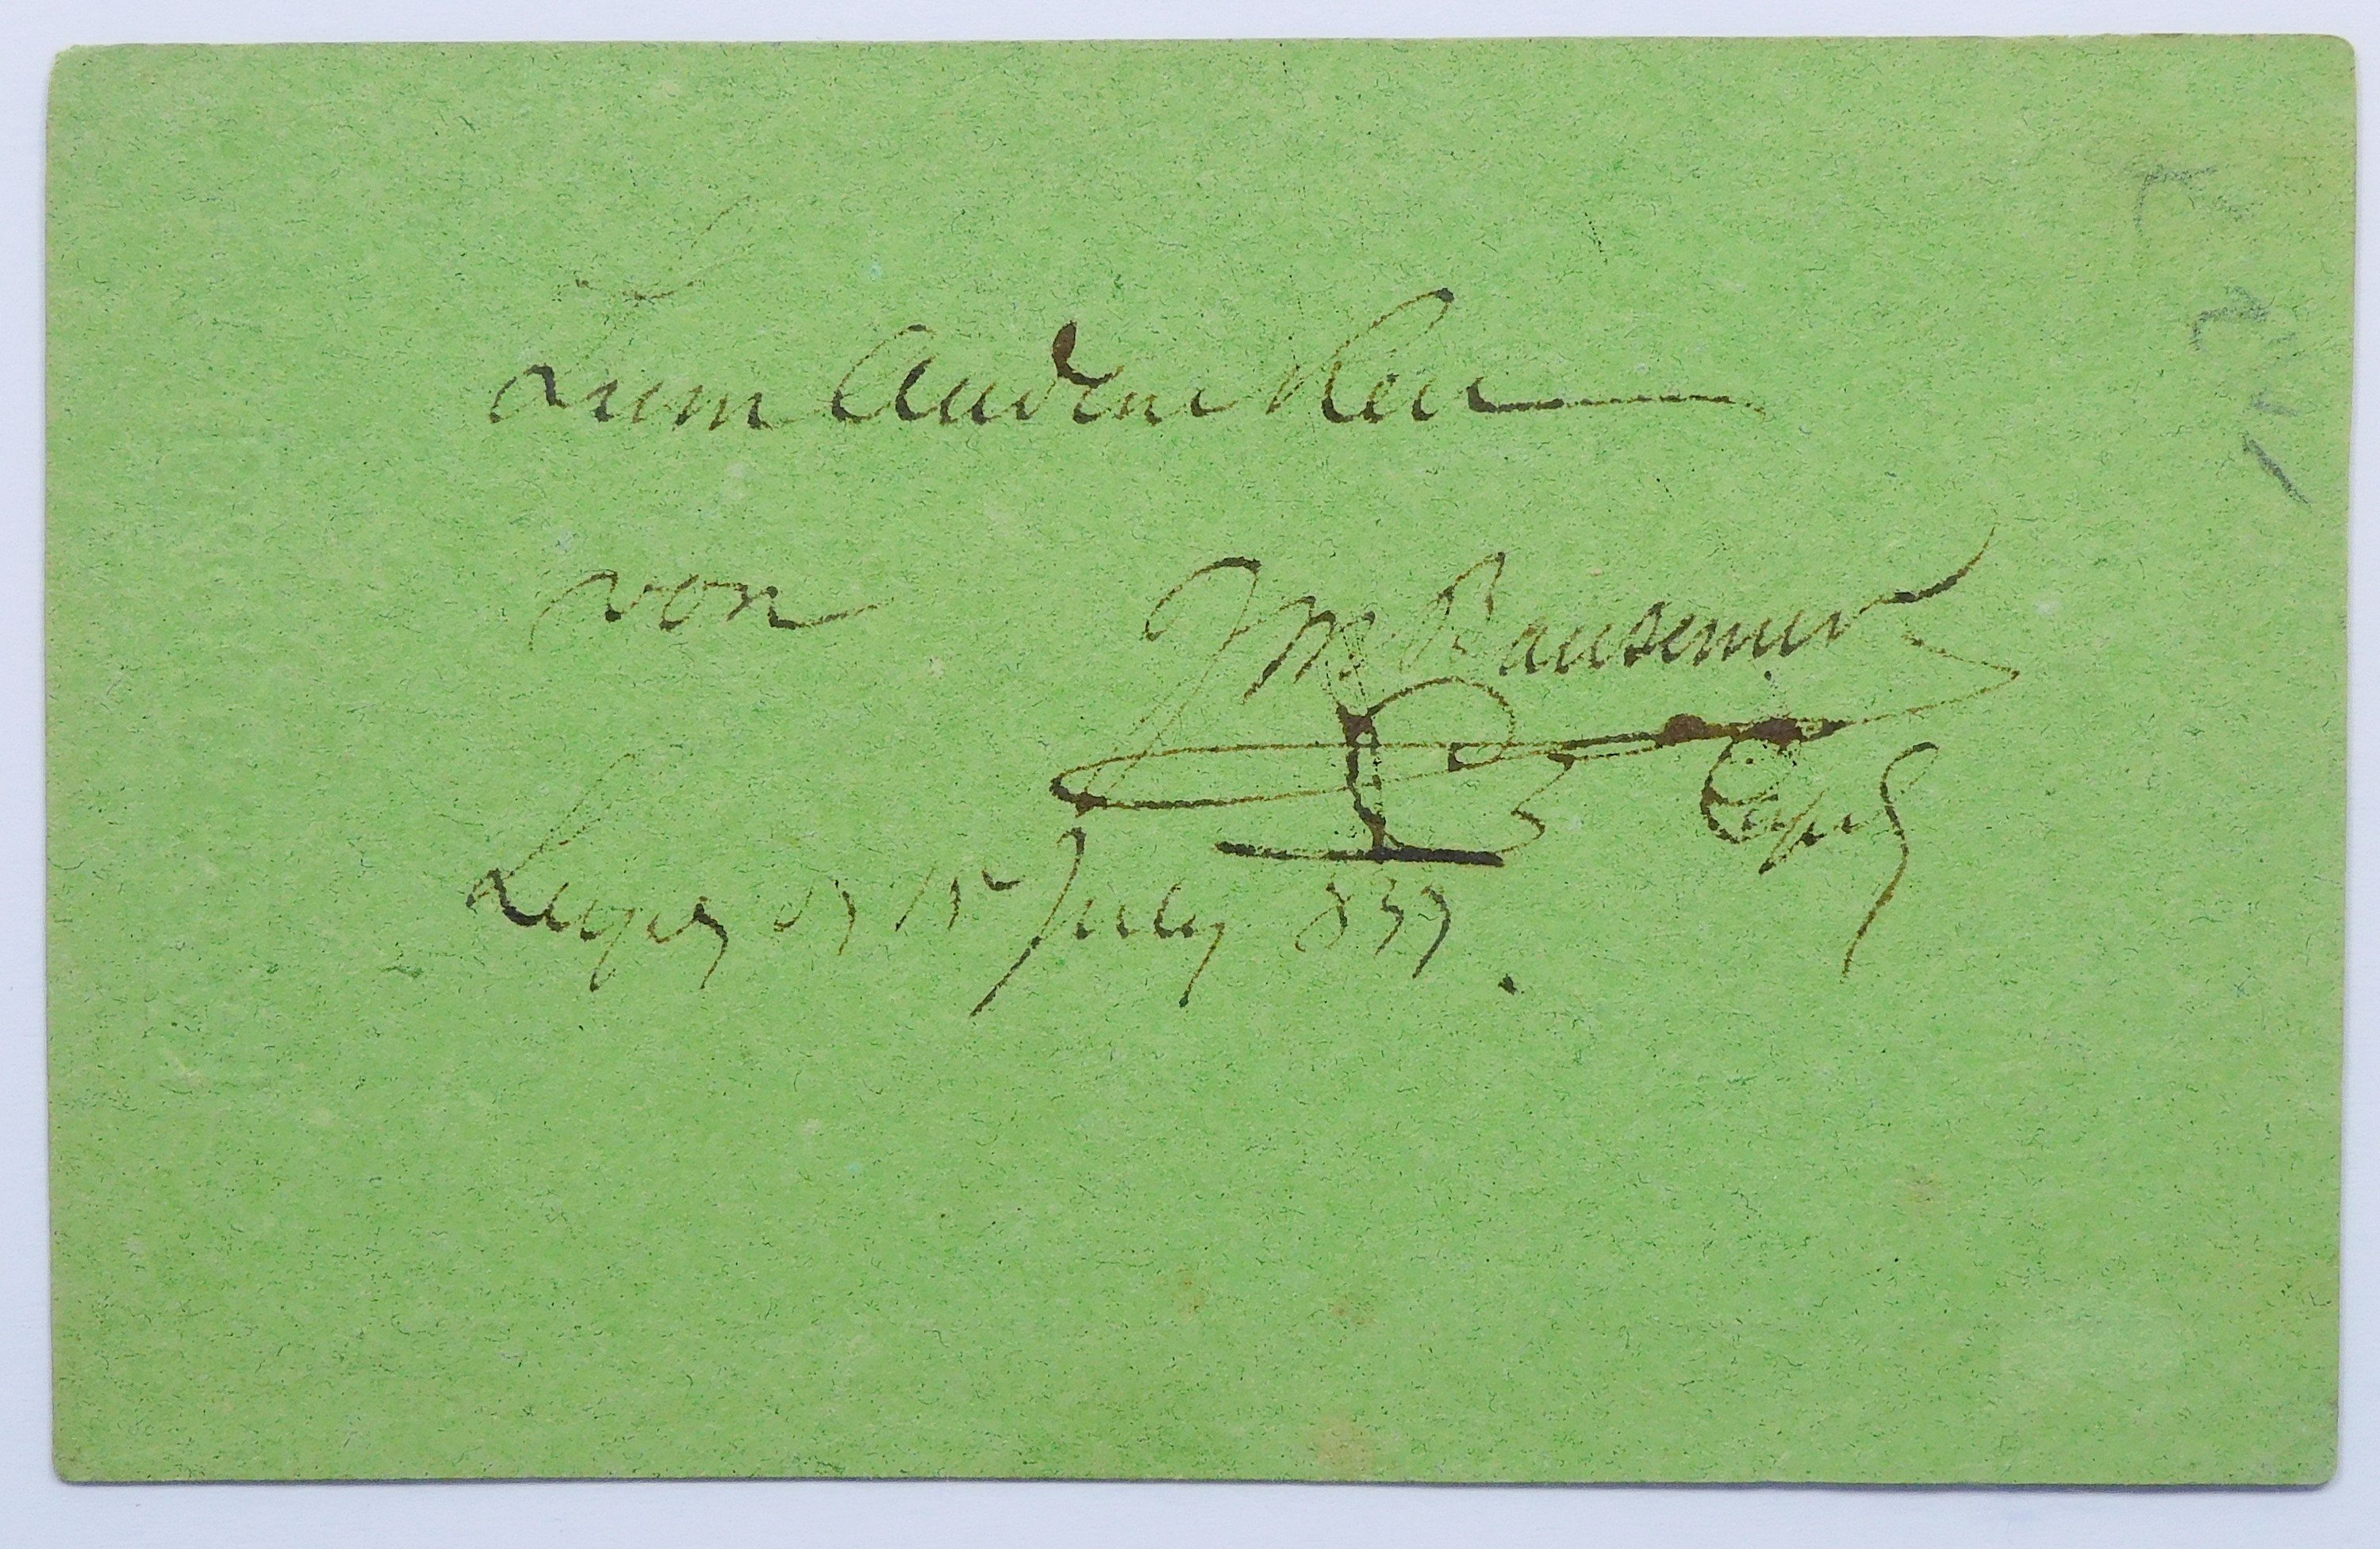 Zum Andencken
von J M Bausewein
Leipzig d 15 July 839.